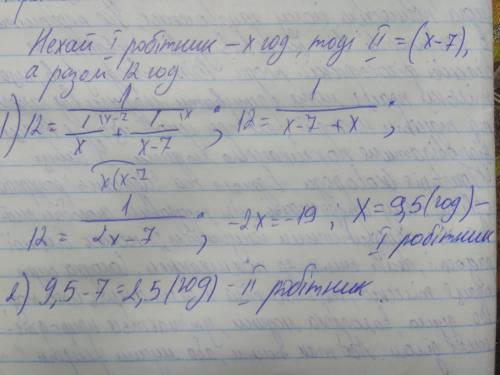 Нехай I робітник – x год, тоді II = (x-7),
а разом 12 год.
1) 12 = 1 / (1/x \x-7 + 1/x-7 \x) ; 12 = 1 / (x-7 + x) ;
x(x-7
12 = 1 / (2x-7) ; -2x = -19 ; X = 9,5 (год) –
I робітник
2) 9,5 - 7 = 2,5 (год) – II робітник